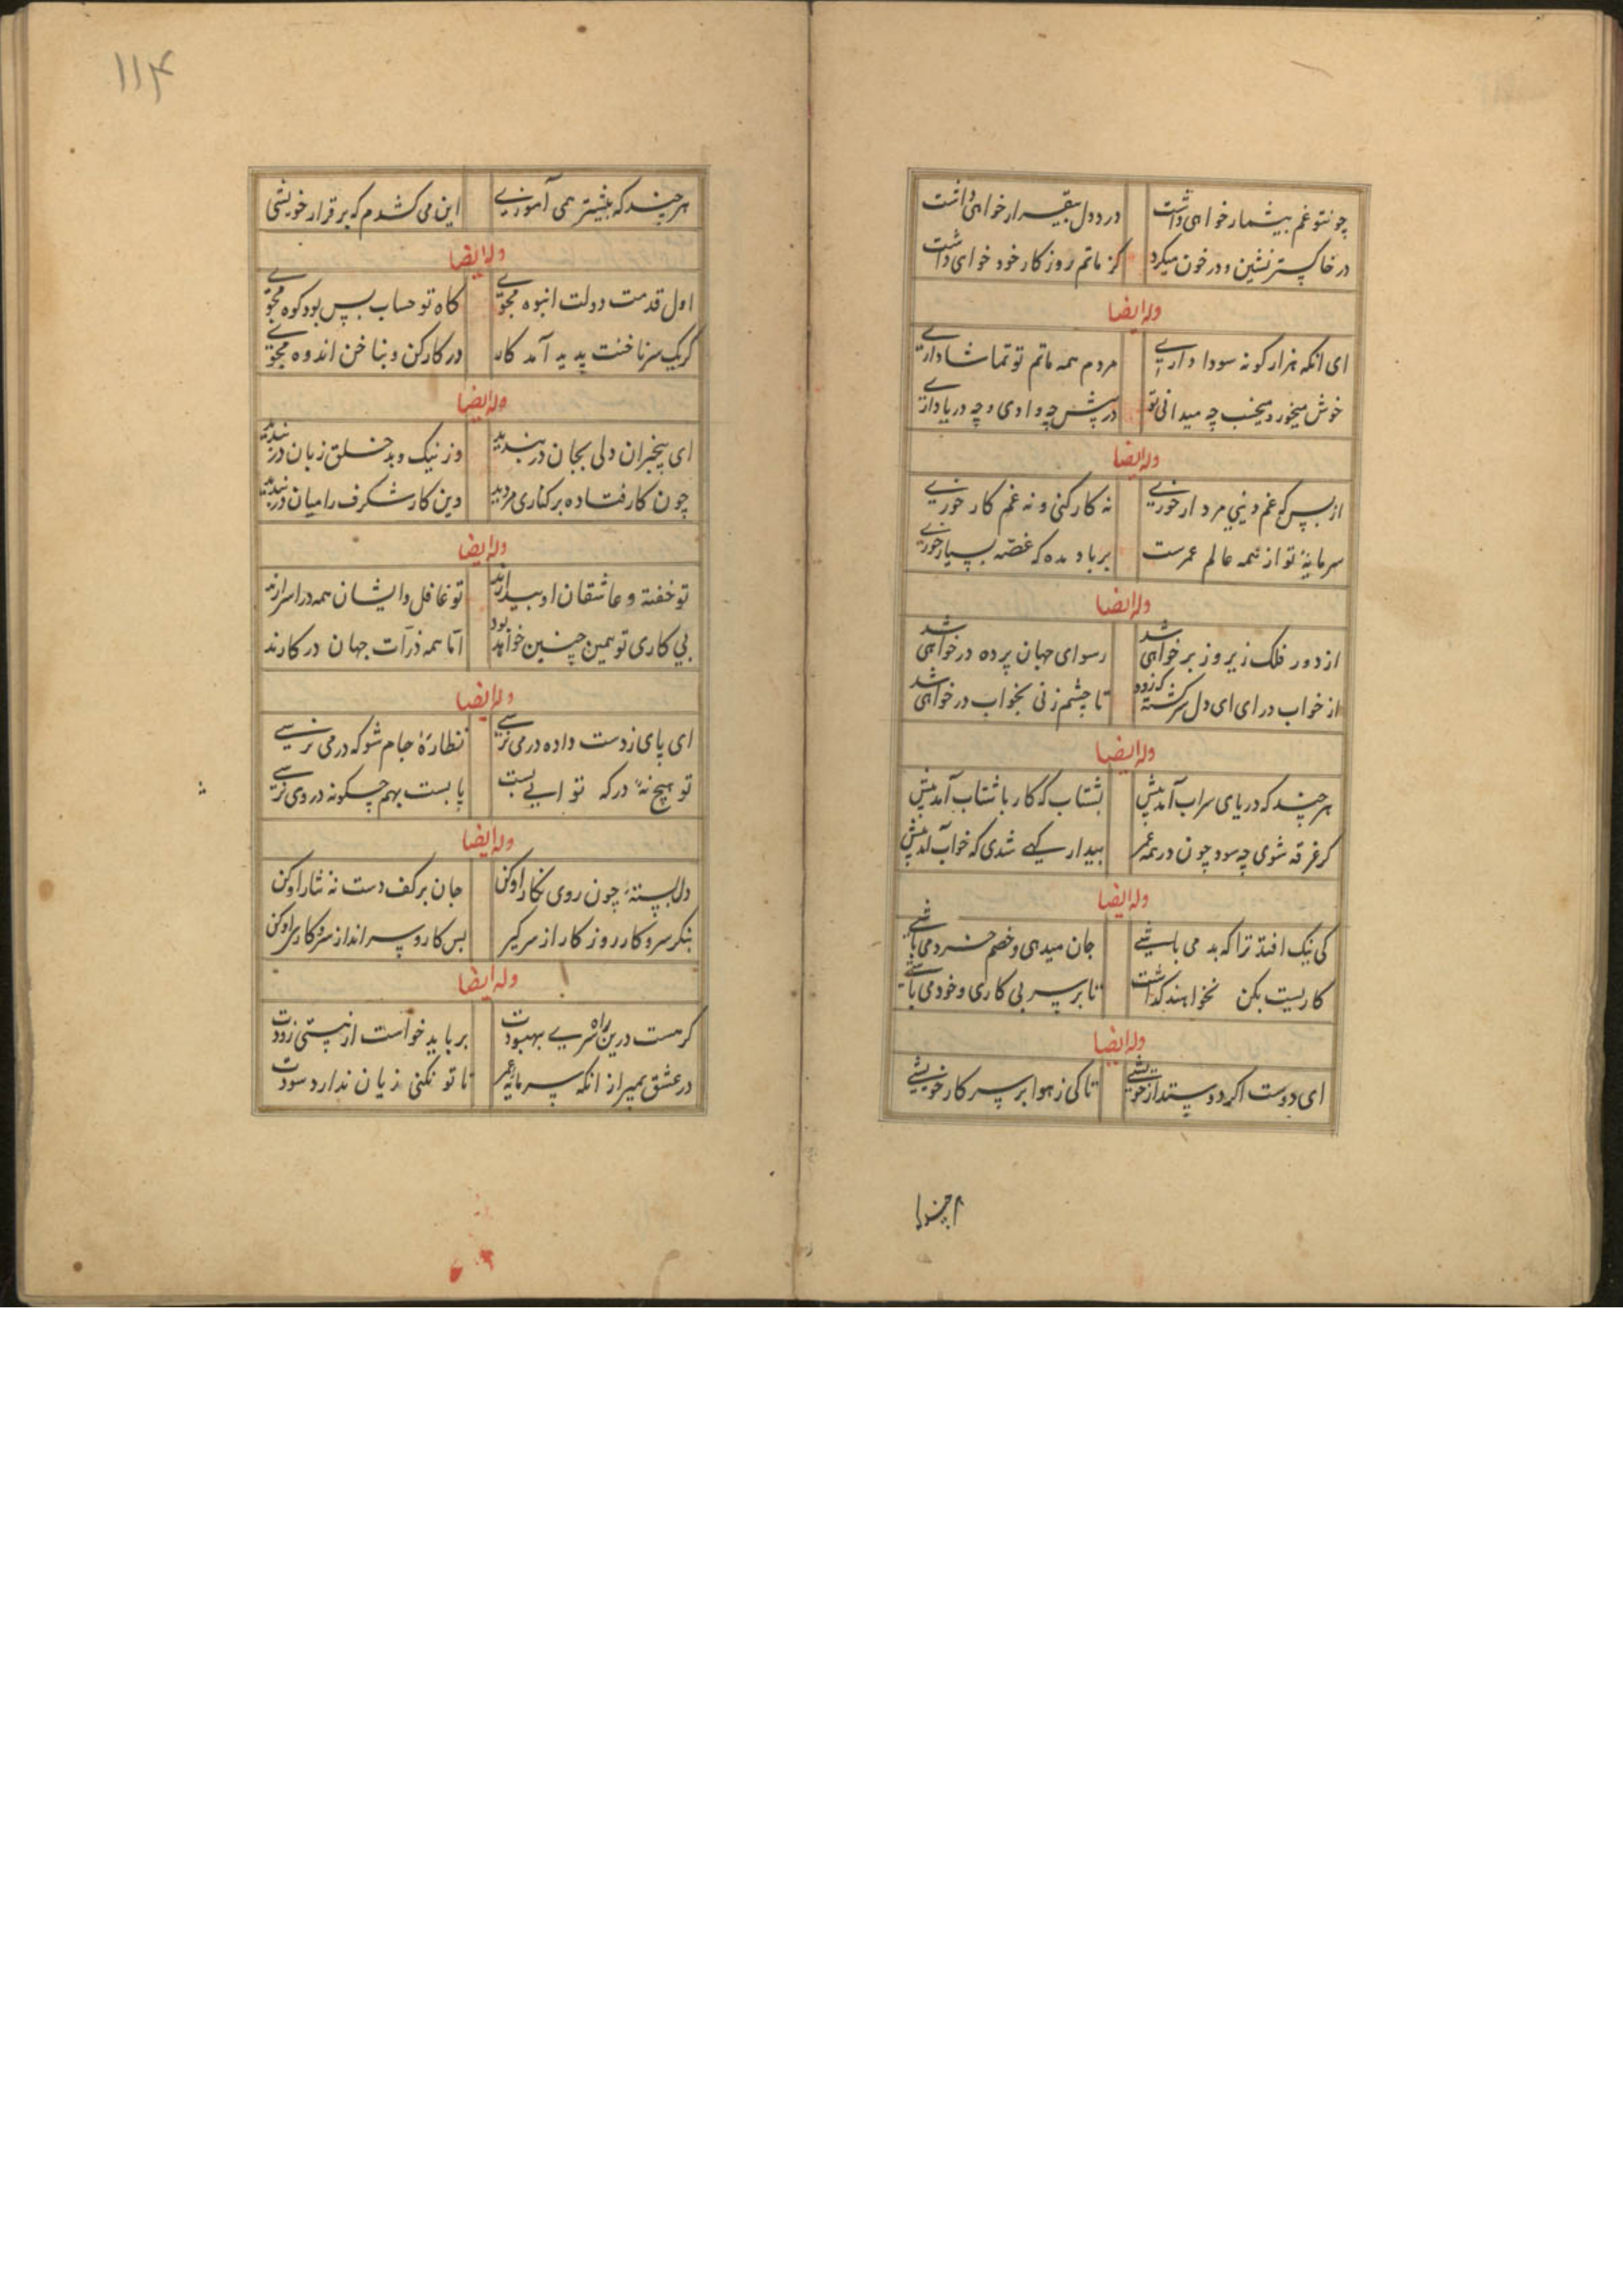 چونتو غم بیشمار خواهی داشت در دل بیقرار خواهی داشت
در خاکستر نشین و در خون میکرد کز ماتم روزکار خود خوای داشت
وله ایضا
ای انکه هزار کونه سودا داری مردم همه ماتم تو تماشا داری
خوش میخور و میخسب چه میدانی تو در پیش چه وادی و چه دریا داری
وله ایضا
از بس که غم دنیی مردار خوری نه کار کنی و نه غم کار خوری
سرمایهٔ تو از همه عالم عمرست بر باد مده که غصّه بسیار خوری
وله ایضا
از دور فلک زیر و زبر خواهی شد رسوای جهان پرده در خواهی شد
از خواب درای ای دل سرکشته که زود تا چشم زنی بخواب در خواهی شد
وله ایضا
هر چند که دریای سراب آمد پیش بشتاب که کار با شتاب آمد پیش
کر غرقه شوی چه سود چون در همه عمر بیدار کهی شدی که خواب آمد پیش
وله ایضا
کی نیک افتد ترا که بد می باشی جان میدهی و خصم خرد می باشی
کاریست بکن نخواهند کذاشت تا بر سر بی کاری و خود می باشی
وله ایضا
ای دوست اکر دوستدار خویشی تا کی ز هوا بر سر کار خویشی
هرچند
۱۱۴
هر چند که بیشتر همی آموزی این می کشدم که بر قرار خویشی
وله ایضا
اول قدمت دولت انبوه مجوی کاه تو حساب بس بود کوه مجوی
کر یک سر ناخنت پدید آمد کار در کار کن و بناخن اندوه مجوی
وله ایضا
ای بیخبران دلی بجان دربندید وز نیک و بد خلق زبان دربندید
چون کار فتاده بر کناری مروید دین کار شکرف را میان دربندید
وله ایضا
تو خفته و عاشقان او بیدارند تو غافل و ایشان همه در اسرارند
بی کاری تو همین چنین خواهد بود امّا همه ذرّات جهان در کارند
وله ایضا
ای پای ز دست داده در می نرسی نظارهٔ جام شو که در می نرسی
تو هیچ نهٔ درکه تو ابی بست پا بست بهم چکونه در وی نرسی
وله ایضا
دل بستهٔ چون روی نکار او کن جان بر کف دست نه نثار او کن
بنکر سر و کار روز کار از سر کیر بس کار و سر انداز سر و کار او کن
وله ایضا
کر هست درین راه سری بهبودت بر باید خواست از هستی زودت
در عشق بمیر از انکه سرمایه عمر تا تو نکنی زیان ندارد سودت